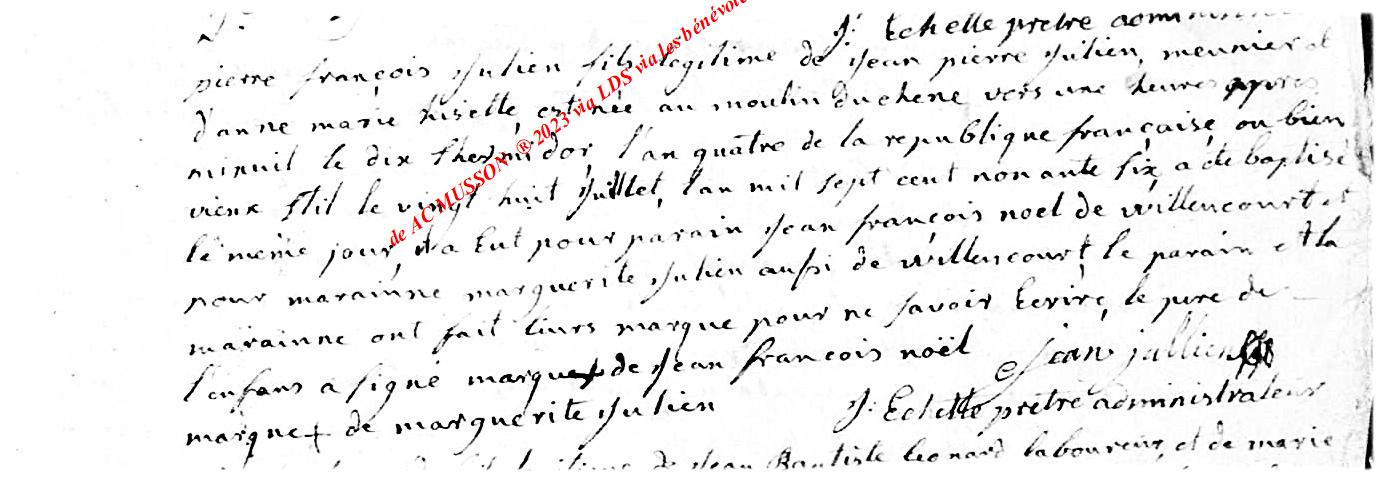 J: Echelle prètre admini
pierre françois Julien fils legitime de Jean pierre Julien, meunier et
d'anne marie hisette, est née au moulin du chene vers une heures appres
minuil le dix thermidor, l'an quatre de la republique française, ou bien
vieux stil le vingt huit Juillet, l'an mil sept cent nonante six, a ete baptisé
le meme jour, il a Eut pour parain Jean françois noel de willencourt et
pour marainne marguerite Julien aussi de willencourt, le parain et la
marainne ont fait leurs marque pour ne savoir Ecrire, le pere de
l'enfans a signé marque + de Jean françois noël Jean jullien
marque + de marguerite Julien J: Echelle prètre administrateur
de Jean Baptiste leonard laboureur, et de marie
de ACMUSSON ® 2023 via LDS via les bénévole